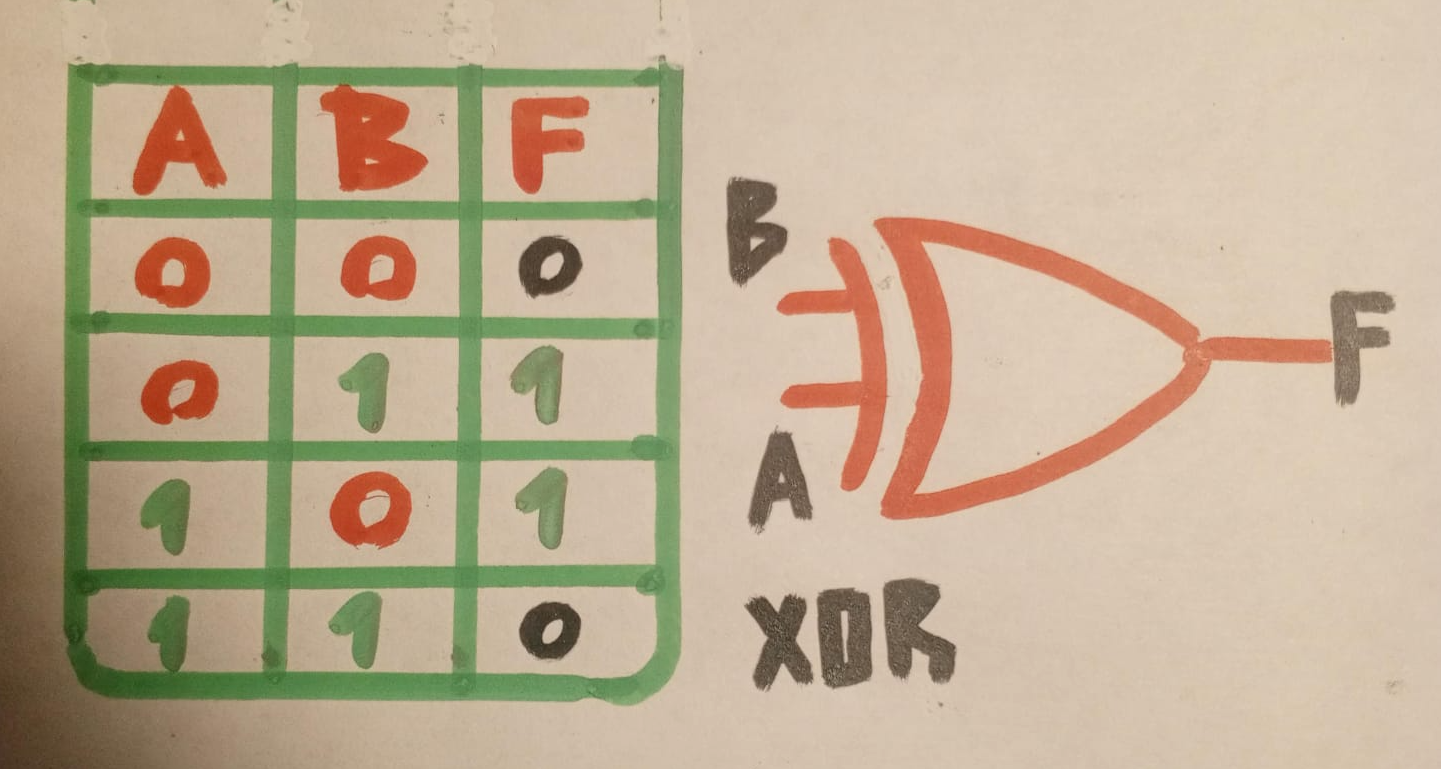 A B F
0 0 0
0 1 1
1 0 1
1 1 0
B
A
F
XOR